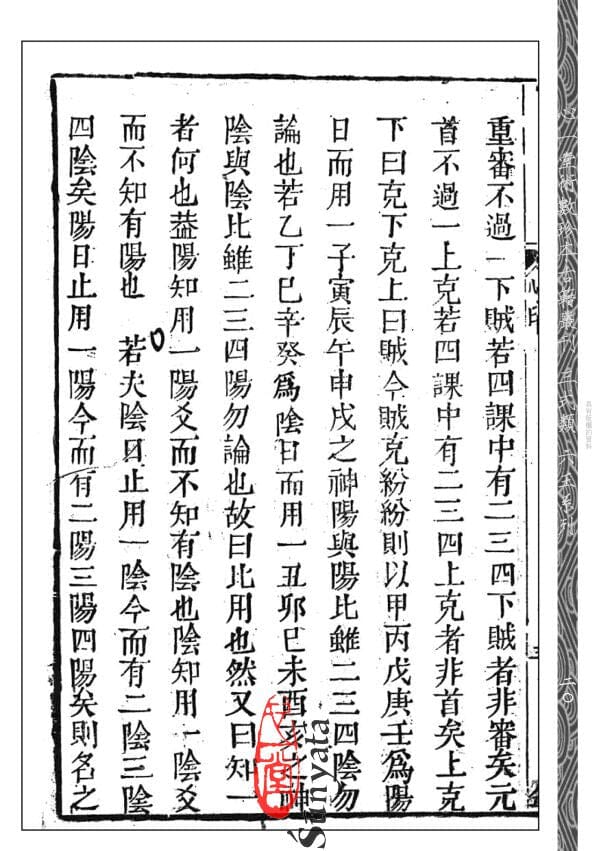 重審不過一下賊若四課中有二三四下賊者非審矣元
首不過一上克若四課中有二三四上克者非首矣上克
下曰克下克上曰賊今賊克紛紛則以甲丙戊庚壬為陽
日而用一子寅辰午申戌之神陽與陽比雖二三四陰勿
論也若乙丁巳辛癸為陰日而用一丑卯巳未酉亥之神
陰與陰比雖二三四陽勿論也故曰比用也然又曰知一
者何也葢陽知用一陽爻而不知有陰也陰知用一陰爻
而不知有陽也 若夫陰日止用一陰今而有二陰三陰
四陰矣陽日止用一陽今而有二陽三陽四陽矣則名之
心一堂術數珍本古籍叢刊 三式類 六壬系列
二〇
心一堂
Sunyata